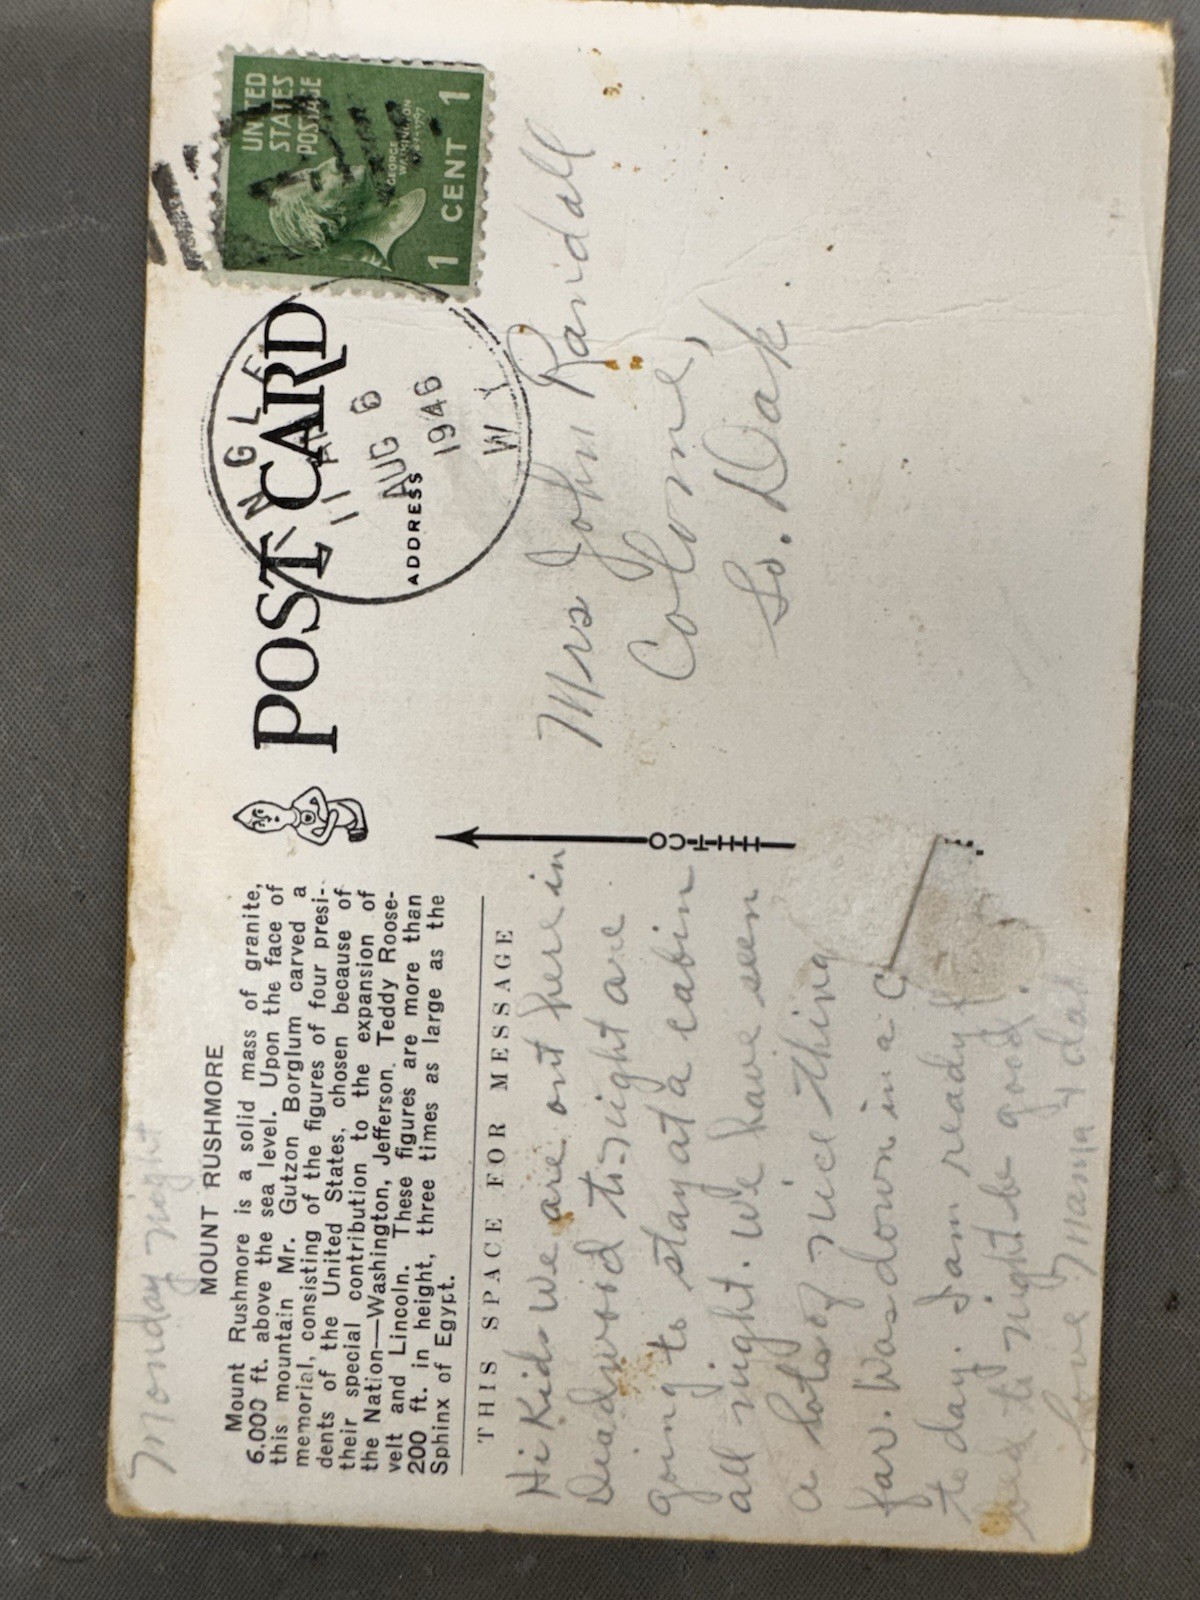 Monday night
MOUNT RUSHMORE
Mount Rushmore is a solid mass of granite,
6,000 ft. above the sea level. Upon the face of
this mountain Mr. Gutzon Borglum carved a
memorial, consisting of the figures of four presi-
dents of the United States, chosen because of
their special contribution to the expansion of
the Nation—Washington, Jefferson, Teddy Roose-
velt and Lincoln. These figures are more than
200 ft. in height, three times as large as the
Sphinx of Egypt.
THIS SPACE FOR MESSAGE
Hi Kids We are out here in
Deadwood to-night are
going to stay at a cabin
all night. We have seen
a lots of nice thing
far. Was down in a
to day. I am ready f
bed to-night be good.
Love Mama & dad
POST CARD
ADDRESS
UNITED
STATES
POSTAGE
GEORGE
WASHINGTON
1 CENT 1
11 AM
AUG 6
1946
WY
HHT-CO
Mrs John Randall
Colome,
So. Dak